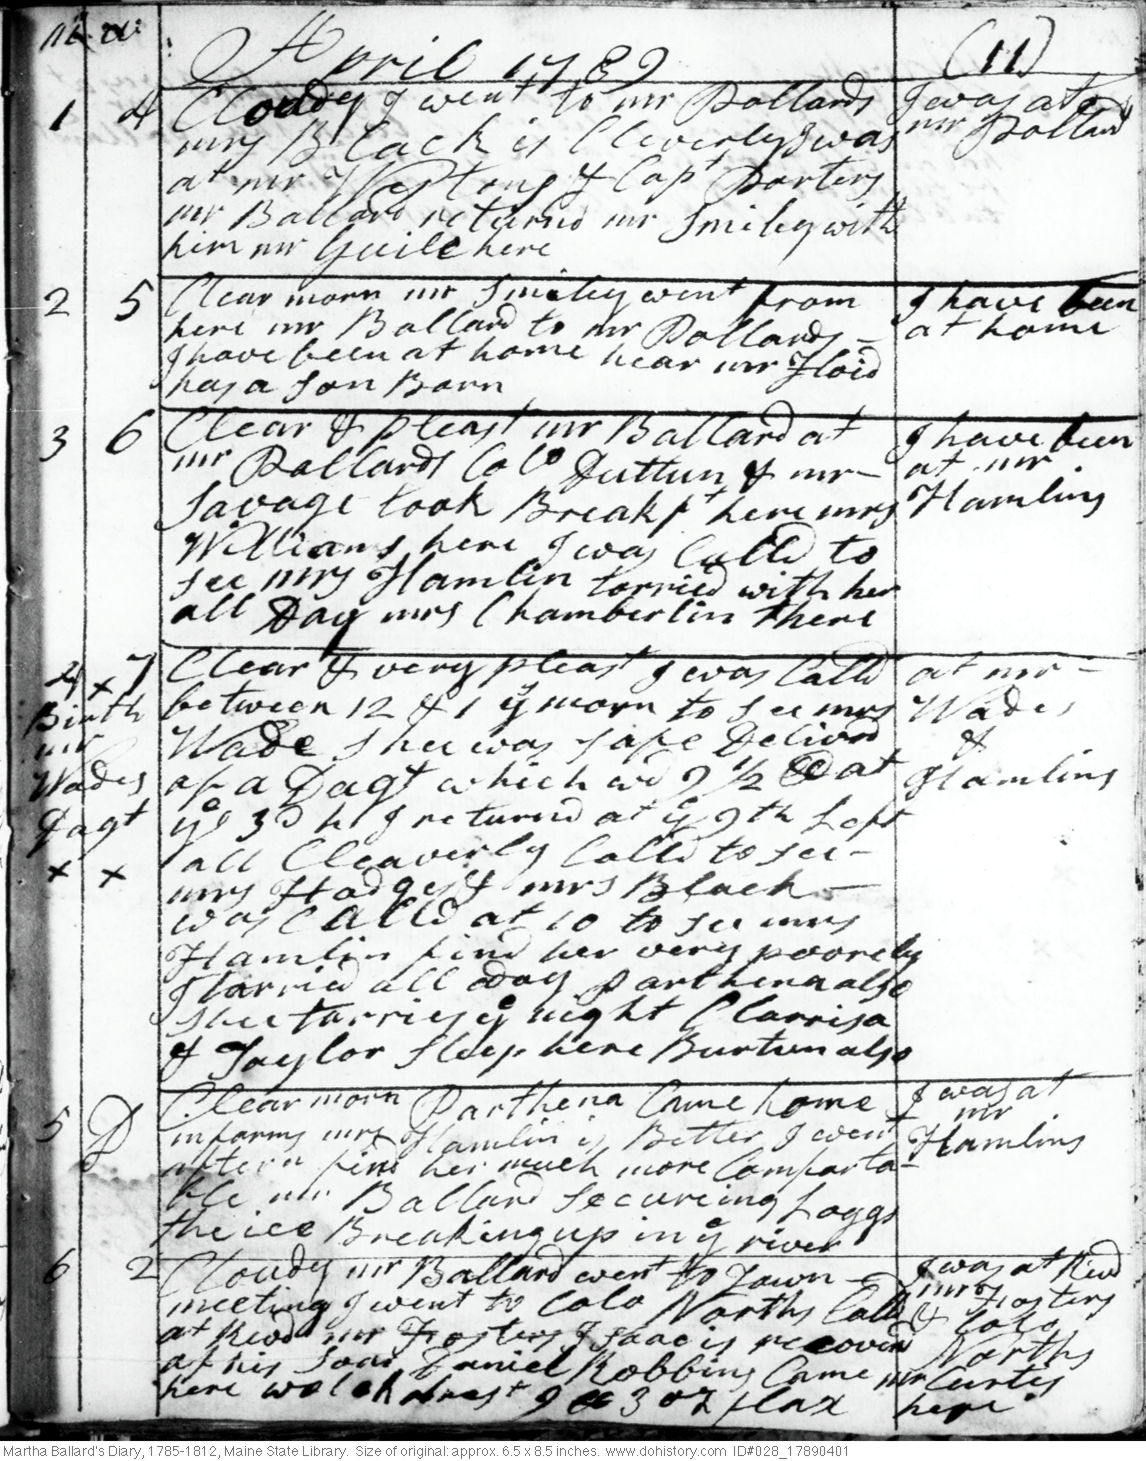 April 1789 (11)
1 4 Cloudy I went to mr Pollards I was at
mrs Black is Cleverly I was mr Pollards
at mr Westons & Capt Porters
mr Ballard returnd mr Smiley with
him mr Guile here
2 5 Clear morn mr Smiley went from I have been
here mr Ballard to mr Pollards – at home
I have been at home hear mr Floid
has a Son Born
3 6 Clear & pleast mr Ballard at I have been
mr Pollards Colo Duttun & mr – at mr
Savage took Breakft here mrs Hamlins
Williams here I was Calld to
see mrs Hamlin tarried with her
all Day mrs Chamberlin there
4 x 7 Clear & very pleast I was Calld at mr –
Birth between 12 & 1 ye morn to see mrs Wades
mr Wade Shee was safe Delivrd &
Wades of a Dagt which wd 9 1/2 at Hamlins
Dagt ye 3d h I returnd at ye 9th Left
x x all Cleaverly Calld to see –
mrs Hodges & mrs Black –
was CAlld at 10 to see mrs
Hamlin find her very poorely
I tarried all day Parthena also
shee tarries ye night Clarrisa
& Taylor sleep here Burtun also
5 D Clear morn Parthena Came home I was at
informs mrs Hamlin is Better I went mr
aftern find her much more Comforta- Hamlins
ble mr Ballard secureing Loggs
the ice Breaking up in ye river
6 2 Cloudy mr Ballard went to Town – I was at Revd
meeting I went to Colo Norths Calld mr Fosters
at Revd mr Fosters Isaac is recovird & Colo
of his Soar Daniel Robbins Came Norths
here 9 3 oz flax mr Curtis
here
Martha Ballard's Diary, 1785-1812, Maine State Library. Size of original: approx. 6.5 x 8.5 inches. www.dohistory.com ID#028_17890401